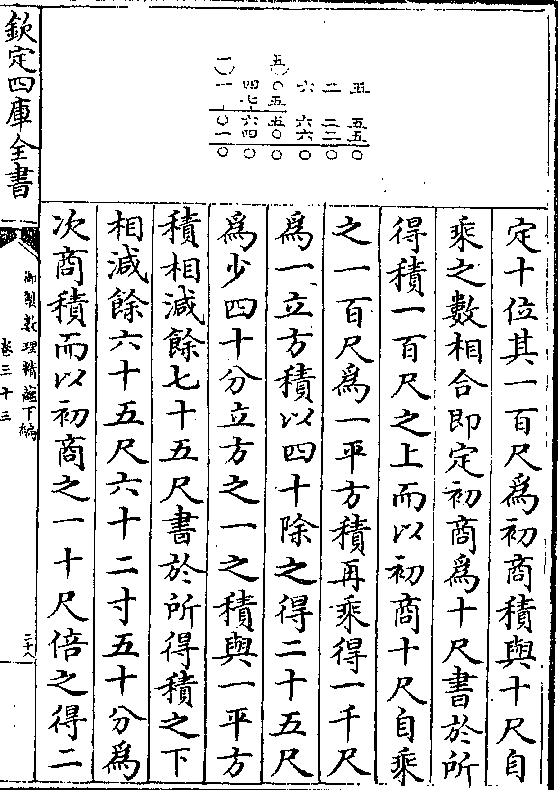 欽定四庫全書
一 五
一四〇六二五
七五
定十位其一百尺爲初商積與十尺自
乘之數相合即定初商爲十尺書於所
得積一百尺之上而以初商十尺自乘
之一百尺爲一平方積再乘得一千尺
爲一立方積以四十除之得二十五尺
爲少四十分立方之一之積與一平方
積相減餘七十五尺書於所得積之下
相減餘六十五尺六十二寸五十分爲
次商積而以初商之一十尺倍之得二
御製數理精蘊下編
卷三十三
二十八